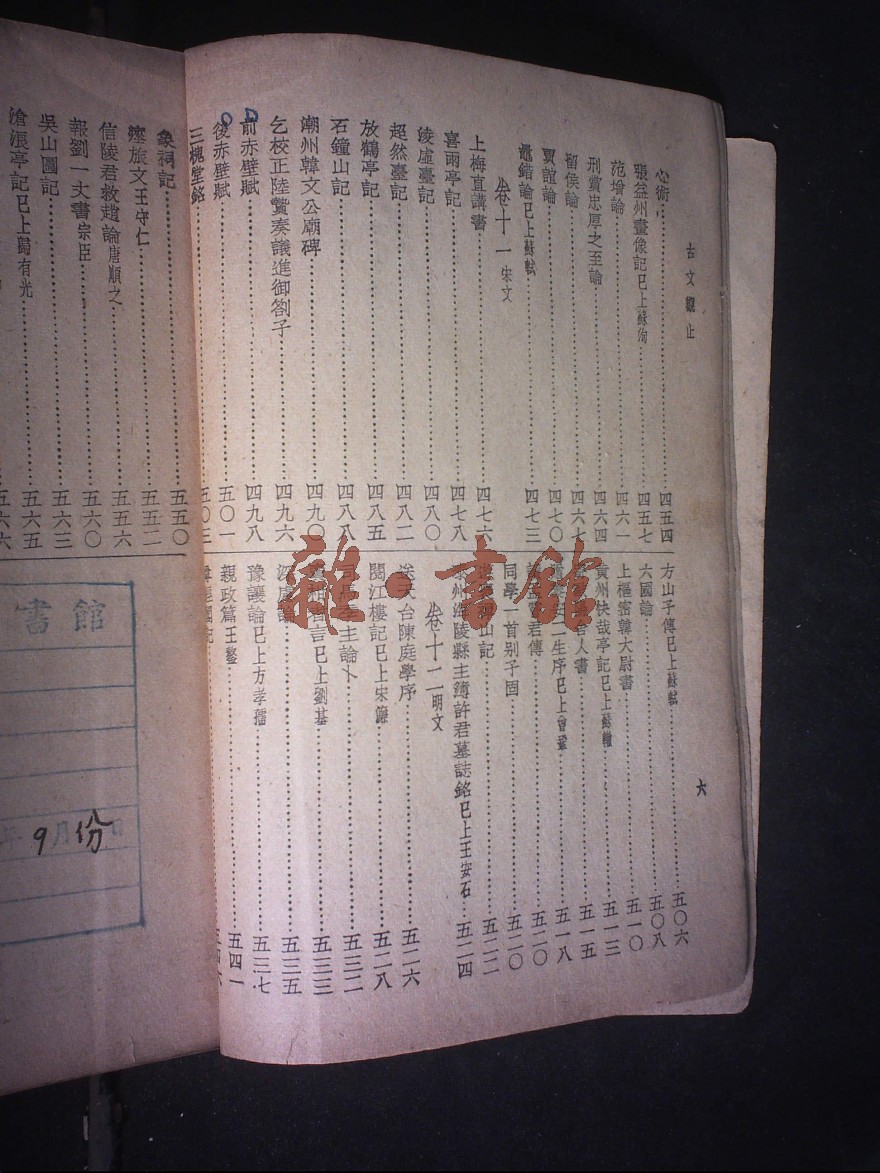 古文觀止
六
心術……四五四
張益州畫像記已上蘇洵……四五七
范增論……四六一
刑賞忠厚之至論……四六四
留侯論……四六七
賈誼論……四七〇
鼂錯論已上蘇軾……四七三
卷十一 宋文
上梅直講書……四七六
喜雨亭記……四七八
凌虛臺記……四八〇
超然臺記……四八二
放鶴亭記……四八五
石鐘山記……四八八
潮州韓文公廟碑……四九〇
乞校正陸贄奏議進御劄子……四九六
前赤壁賦……四九八
後赤壁賦……五〇一
三槐堂銘……五〇三
方山子傳已上蘇軾……五〇六
六國論……五〇八
上樞密韓太尉書……五一〇
黃州快哉亭記已上蘇轍……五一三
人書……五一五
二生序已上曾鞏……五一八
君傳……五二〇
同學一首別子固……五二〇
山記……五二二
泰州海陵縣主簿許君墓誌銘已上王安石……五二四
卷十二 明文
送天台陳庭學序……五二六
閱江樓記已上宋濂……五二八
主論……五三二
言已上劉基……五三三
深慮論……五三五
豫讓論已上方孝孺……五三七
親政篇王鏊……五四一
象祠記……五五〇
瘞旅文王守仁……五五二
信陵君救趙論唐順之……五五六
報劉一丈書宗臣……五六〇
吳山圖記……五六三
滄浪亭記已上歸有光……五六五
五六六
雜·書館
書館
年9月份日